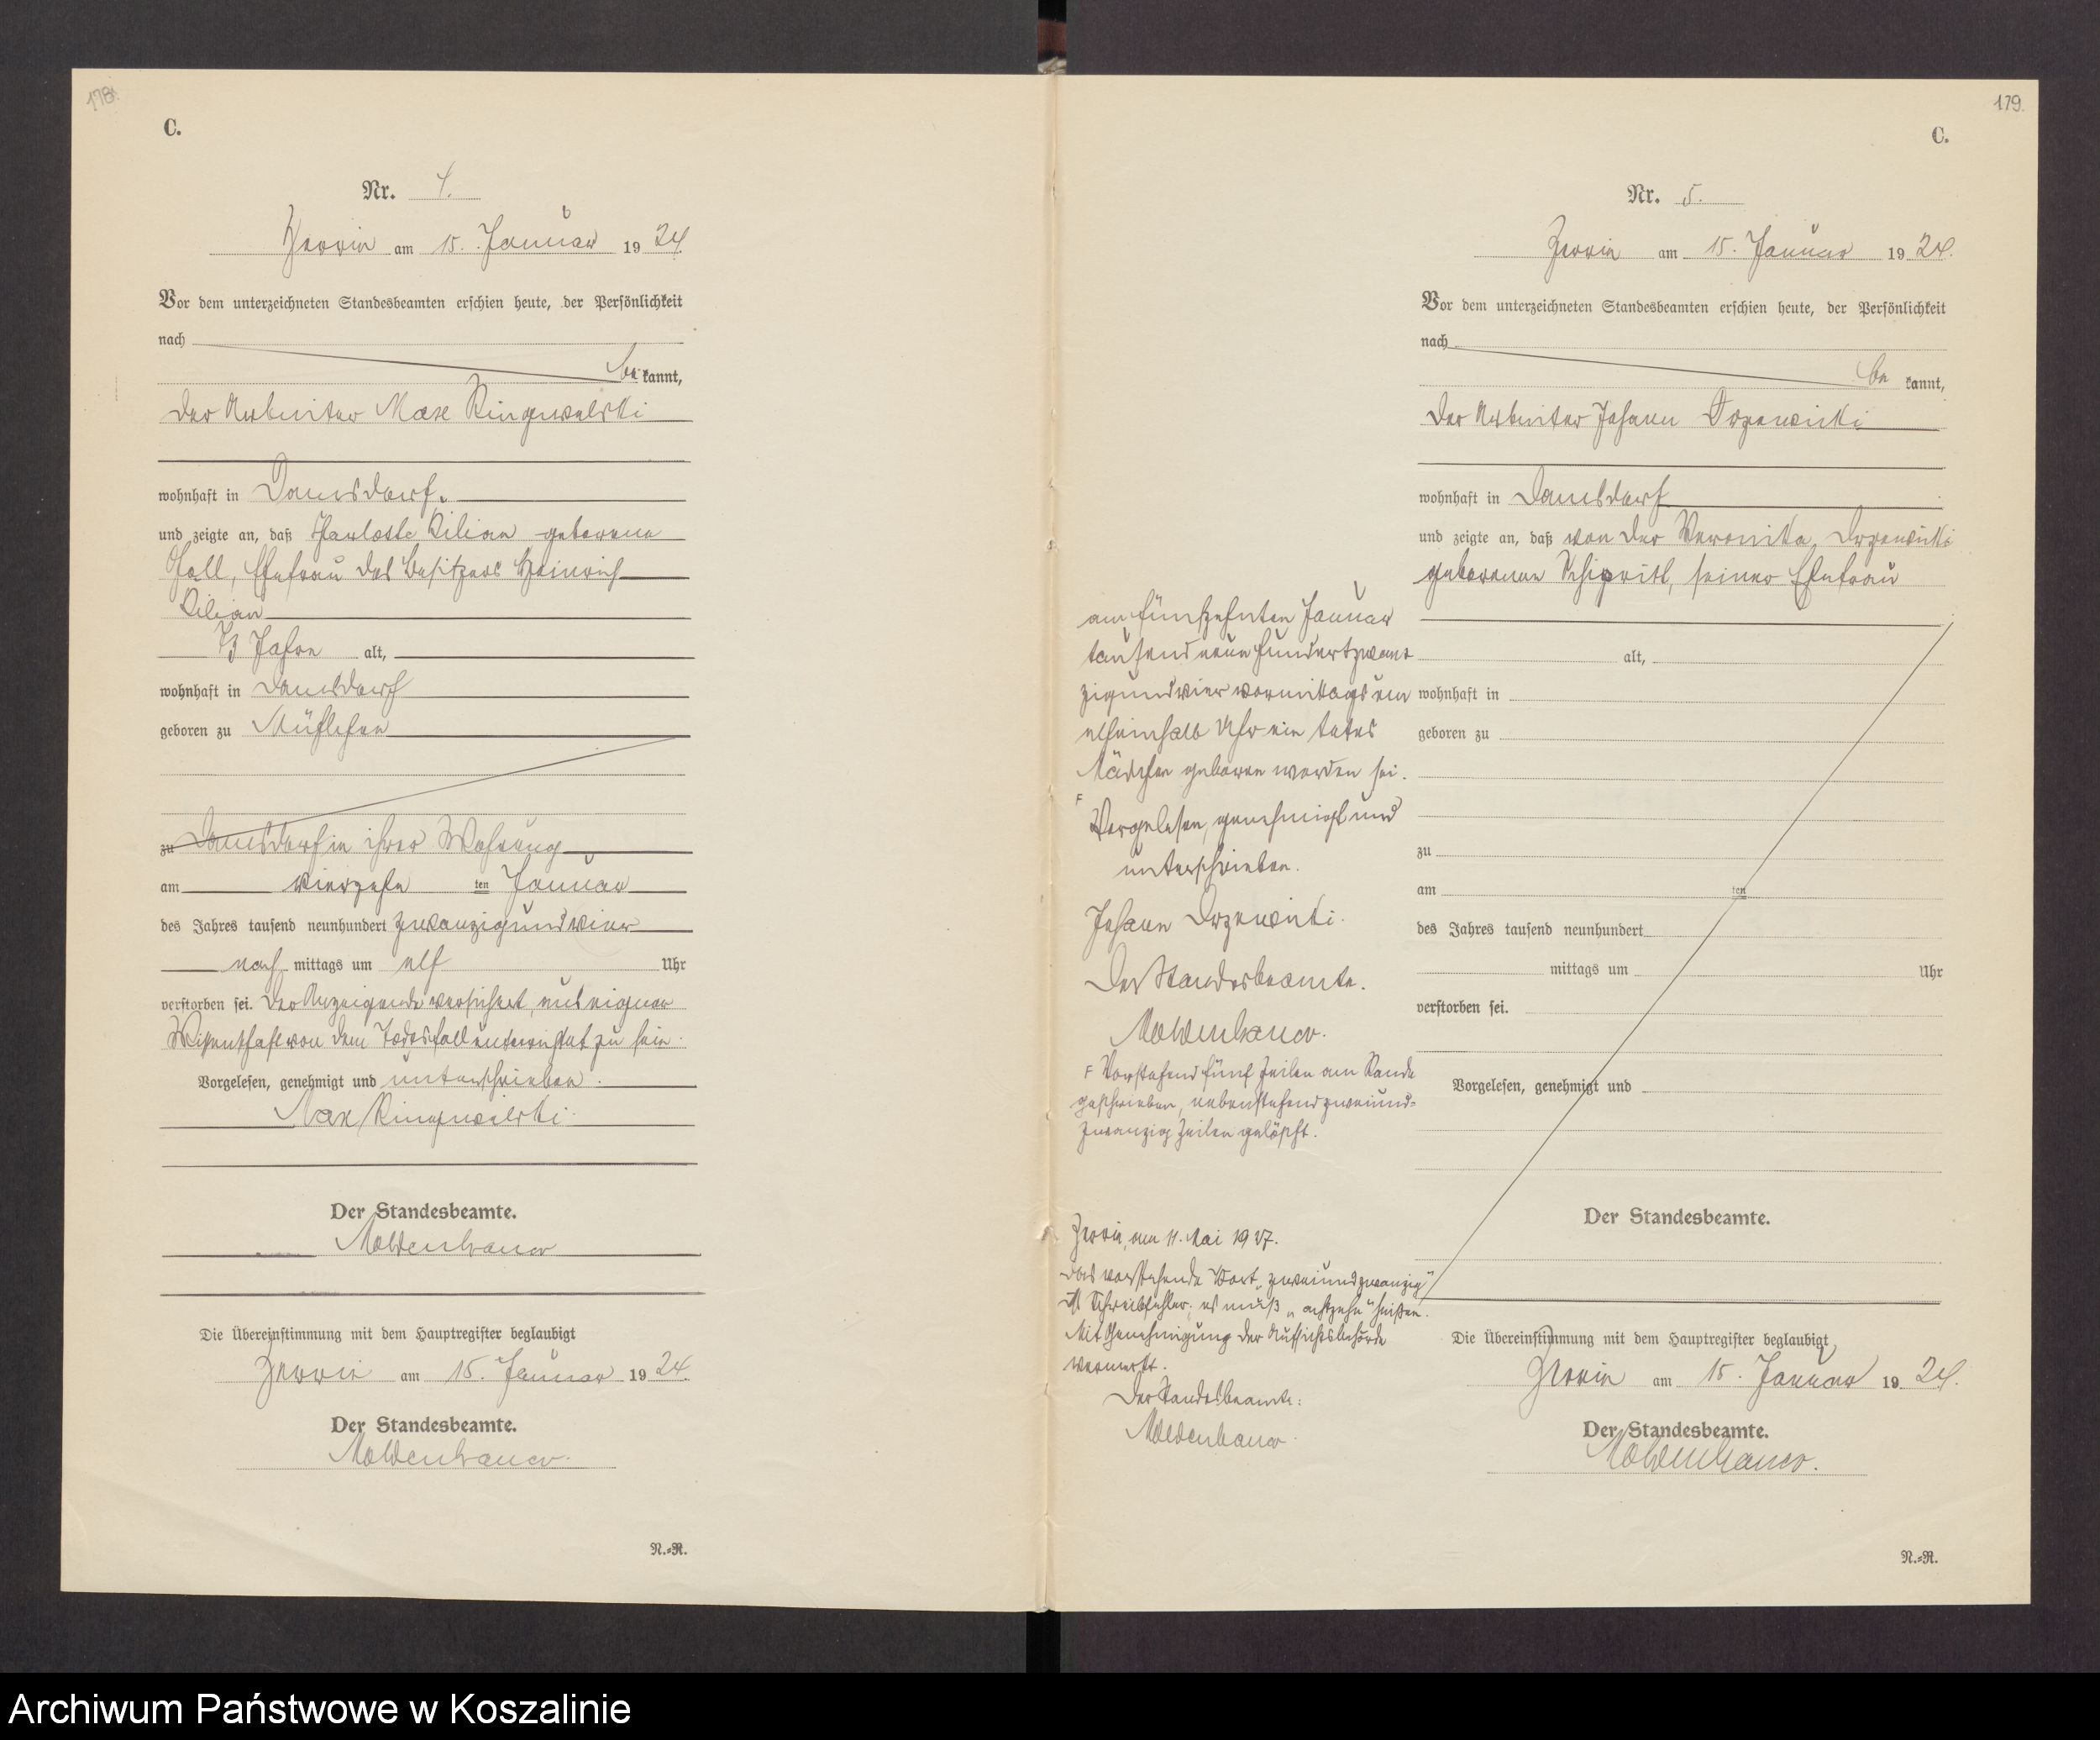 178.
C.
Nr. 4.
Zerrin am 15. Januar 1924.
Vor dem unterzeichneten Standesbeamten erschien heute, der Persönlichkeit
nach
be kannt,
der Arbeiter Max Ringwelski
wohnhaft in Damsdorf.
und zeigte an, daß Charlotte Kilian geborene
Foll, Ehefrau des Besitzers Heinrich
Kilian
73 Jahre alt,
wohnhaft in Damsdorf
geboren zu
zu Damsdorf in ihrer Wohnung
am vierzehn ten Januar
des Jahres tausend neunhundert zwanzigundvier
nach mittags um elf Uhr
verstorben sei. Der Anzeigende versichert, aus eigner
Wissenschaft von dem Todesfall unterrichtet zu sein.
Vorgelesen, genehmigt und unterschrieben.
Max Ringwelski.
Der Standesbeamte.
Moldenhauer
Die Übereinstimmung mit dem Hauptregister beglaubigt
Zerrin am 15. Januar 1924.
Der Standesbeamte.
Moldenhauer.
N.=R.
179.
C.
Nr. 5.
Zerrin am 15. Januar 1924.
Vor dem unterzeichneten Standesbeamten erschien heute, der Persönlichkeit
nach
be kannt,
der Arbeiter Johann Drzewicki
wohnhaft in Damsdorf
und zeigte an, daß von der Veronika Drzewicki
geborenen seiner Ehefrau
am fünfzehnten Januar
tausendneunhundertzwan
zigundvier vormittags um
elfeinhalb Uhr ein totes
Mädchen geboren worden sei.
F
Vorgelesen, genehmigt und
unterschrieben.
Johann Drzewicki.
Der Standesbeamte.
Moldenhauer.
F Vorstehend fünf Zeilen am Rande
geschrieben, nebenstehend zweiund=
zwanzig Zeilen gelöscht.
Zerrin, am 11. Mai 1927.
Das vorstehende Wort „zweiundzwanzig"
ist Schreibfehler, es muß „achtzehn" heißen.
Mit Genehmigung der Aufsichtsbehörde
vermerkt.
Der Standesbeamte:
Moldenhauer.
alt,
wohnhaft in
geboren zu
zu
am ten
des Jahres tausend neunhundert
mittags um Uhr
verstorben sei.
Vorgelesen, genehmigt und
Der Standesbeamte.
Die Übereinstimmung mit dem Hauptregister beglaubigt
Zerrin am 15. Januar 1924.
Der Standesbeamte.
Moldenhauer.
N.=R.
Archiwum Państwowe w Koszalinie